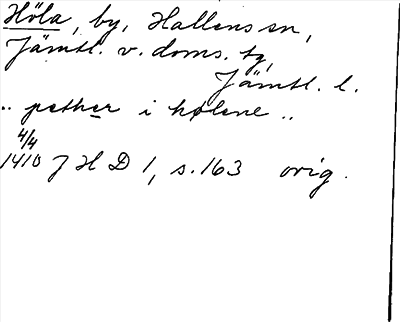 Höla, by, Hallens sn,
Jämtl. v. doms. tg,
Jämtl. l.
.. pether i hølene ..
4/4
1410 J H D 1, s. 163 orig.